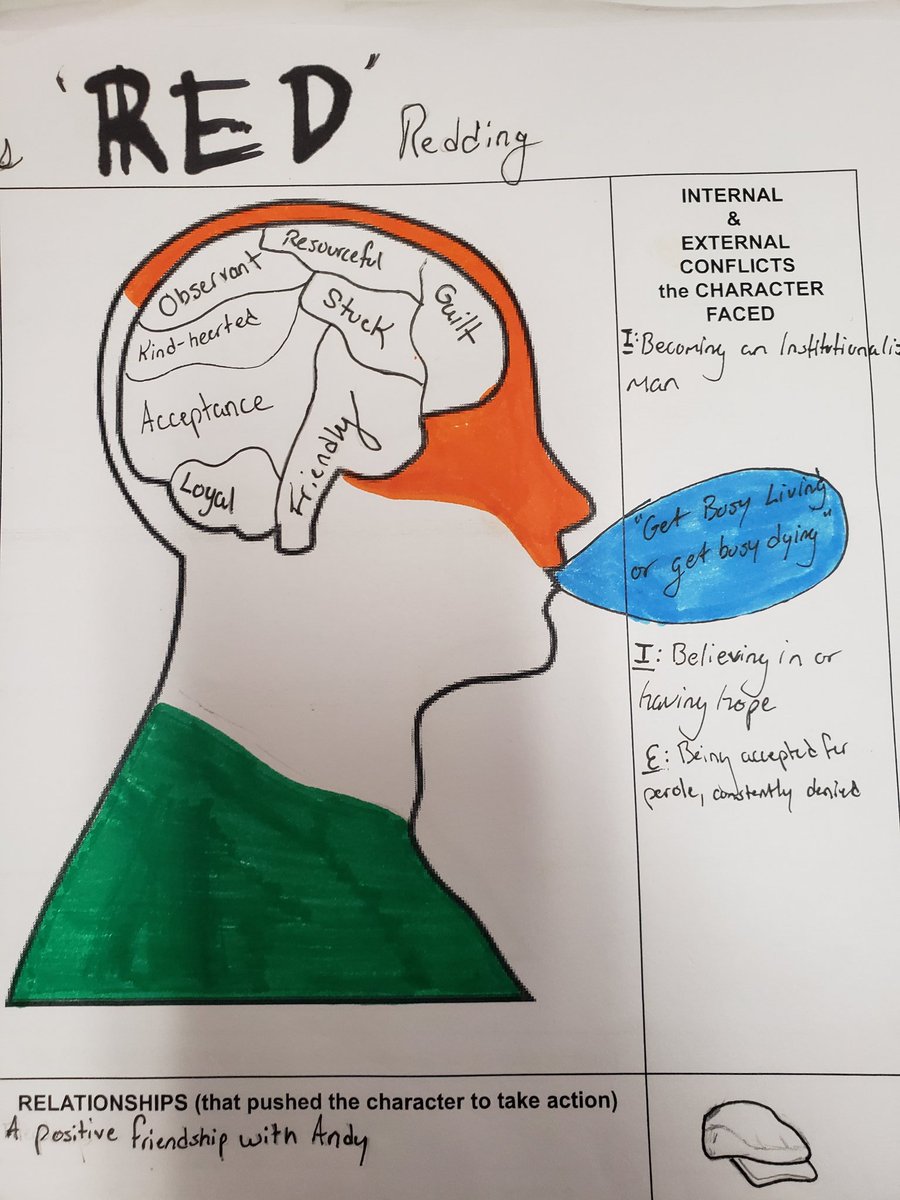 s "RED" Redding
INTERNAL
&
EXTERNAL
CONFLICTS
the CHARACTER
FACED
Observant
Resourceful
Guilt
Kind-hearted
Stuck
Acceptance
Friendly
Loyal
I: Becoming an Institutionaliz
Man
"Get Busy Living
or get busy dying"
I: Believing in or
having hope
E: Being accepted for
perole, constantly denied
RELATIONSHIPS (that pushed the character to take action)
A positive friendship with Andy